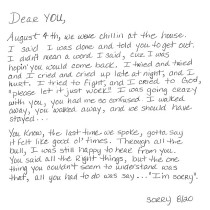 Dear YOU,
August 4th, we were chillin at the house.
I said I was done and told you to get out.
I didn't mean a word I said, cuz I was
hopin' you would come back. I tried and tried
and I cried and cried up late at night, and I
hurt. I tried to fight, and I cried to God,
"please let it just work!" I was going crazy
with you, you had me so confused. I walked
away, you walked away, and we should have
stayed...
You know, the last time we spoke, gotta say
it felt like good ol' times. Through all the
bull, I was still happy to hear from you.
You said all the Right things, but the one
thing you couldn't seem to understand was
that, all you had to do was say... "I'm sorry".
sorry